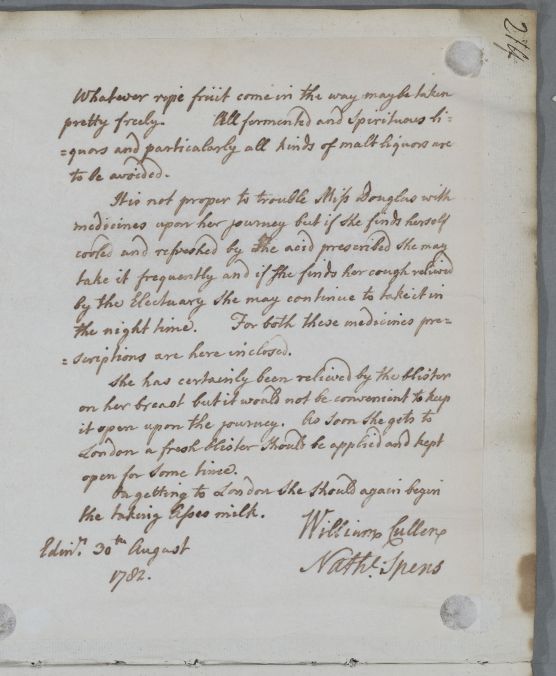 274
Whatever ripe fruit come in the way may be taken
pretty freely. All formented and Spirituous li=
=quors and particularly all kinds of malt liquors are
to be avoided.
It is not proper to trouble Miss Douglas with
medicines upon her journey but if she finds herself
cooled and refreshed by the acid prescribed she may
take it frequently and if she finds her cough relieved
by the Electuary she may continue to take it in
the night time. For both these medicines pre=
=scriptions are here inclosed.
She has certainly been relieved by the blister
on her breast but it would not be convenient to keep
it open upon the journey. As soon she gets to
London a fresh blister should be applied and kept
open for some time.
On getting to London she should again begin
the taking Asses milk.
William Cullen
Edinr. 30th August
Nathl. Spens
1782.